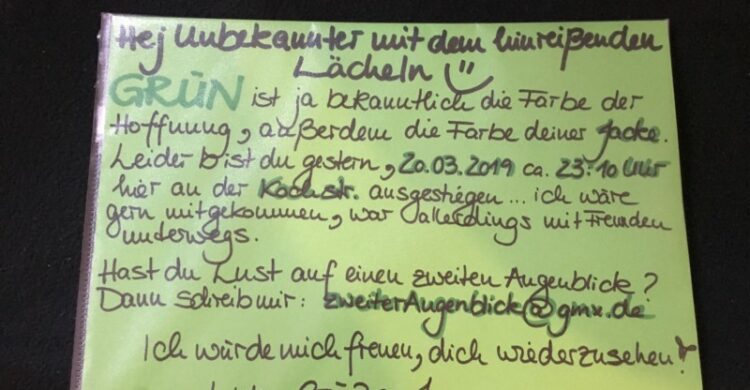 Hej Unbekannter mit dem hinreißenden
Lächeln
GRÜN ist ja bekanntlich die Farbe der
Hoffnung, außerdem die Farbe deiner Jacke.
Leider bist du gestern, 20.03.2019 ca. 23:10 Uhr
hier an der Kochstr. ausgestiegen... ich wäre
gern mitgekommen, war allerdings mit Freunden
unterwegs.
Hast du Lust auf einen zweiten Augenblick?
Dann schreib mir: zweiterAugenblick@gmx.de
Ich würde mich freuen, dich wiederzusehen!